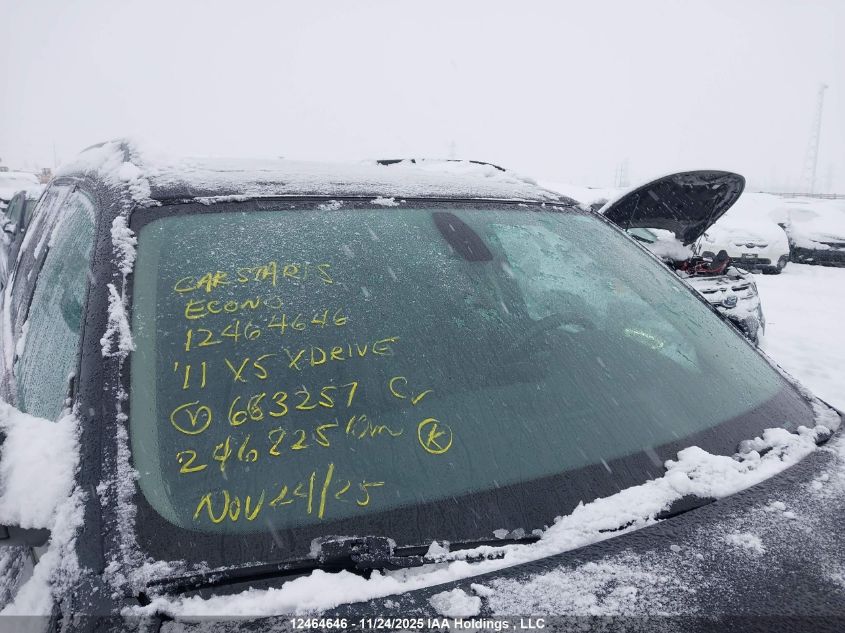 CAR STARTS
ECONO
12464646
'11 X5 XDRIVE
V 683257 Cr
246825 Km K
NOV 24/25
12464646 - 11/24/2025 IAA Holdings , LLC